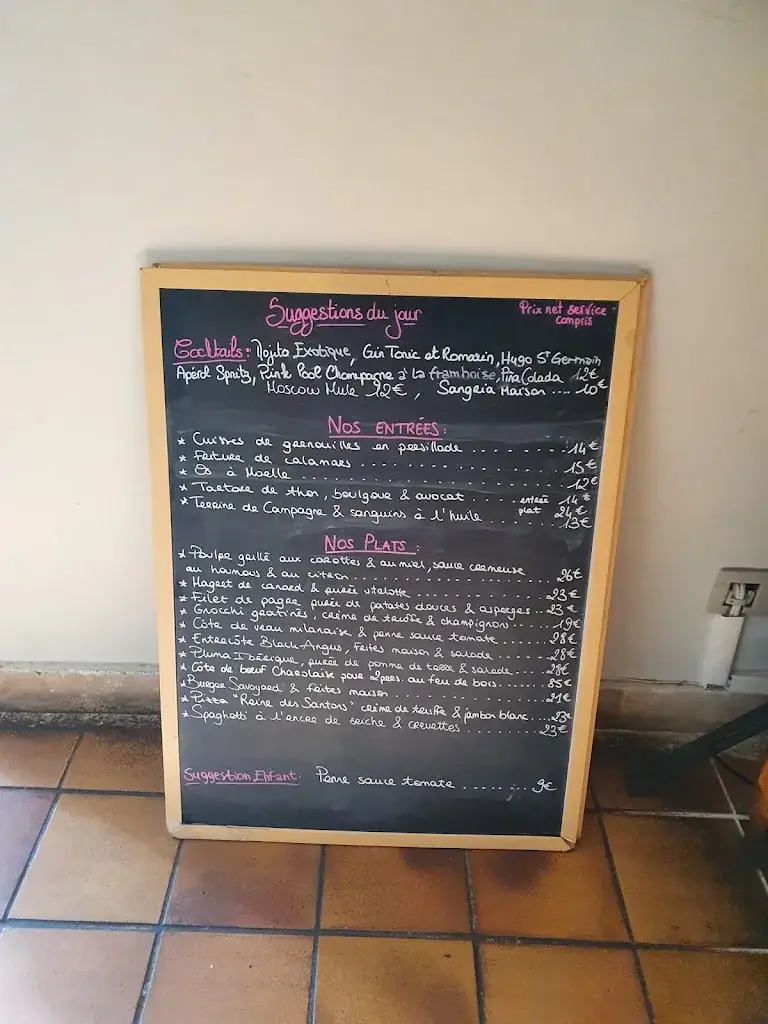 Suggestions du jour
Prix net service compris
Cocktails : Mojito Exotique, Gin Tonic et Romarin, Hugo St Germain
Apérol Spritz, Pink Pool Champagne à La framboise, Piña Colada 12€
Moscow Mule 12€, Sangria Maison .... 10€
NOS ENTRÉES :
* Cuisses de grenouilles en persillade ....... 14€
* Friture de calamars ....... 15€
* Os à Moelle ....... 12€
* Tartare de thon, boulgour & avocat ....... entrée 14€
plat 24€
* Terrine de Campagne & sanguins à l'huile ....... 13€
NOS PLATS :
* Poulpe grillé aux carottes & au miel, sauce crémeuse
au houmous & au citron ....... 26€
* Magret de canard & purée ....... 23€
* Filet de pagre purée de patates douces & asperges .. 23€
* Gnocchi gratinés, crème de truffe & champignon ....... 19€
* Côte de veau milanaise & penne sauce tomate ....... 28€
* Entrecôte Black-Angus, frites maison & salade ....... 28€
* Pluma Ibérique, purée de pomme de terre & salade .... 28€
* Côte de bœuf Charolaise pour 2pers. au feu de bois .....
* Burger Savoyard & frites maison ....... 21€
* Pizza "Reine des Santons" crème de truffe & jambon blanc .... 23€
* Spaghetti à l'encre de seiche & crevettes ....... 23€
Suggestion Enfant : Penne sauce tomate ....... 9€